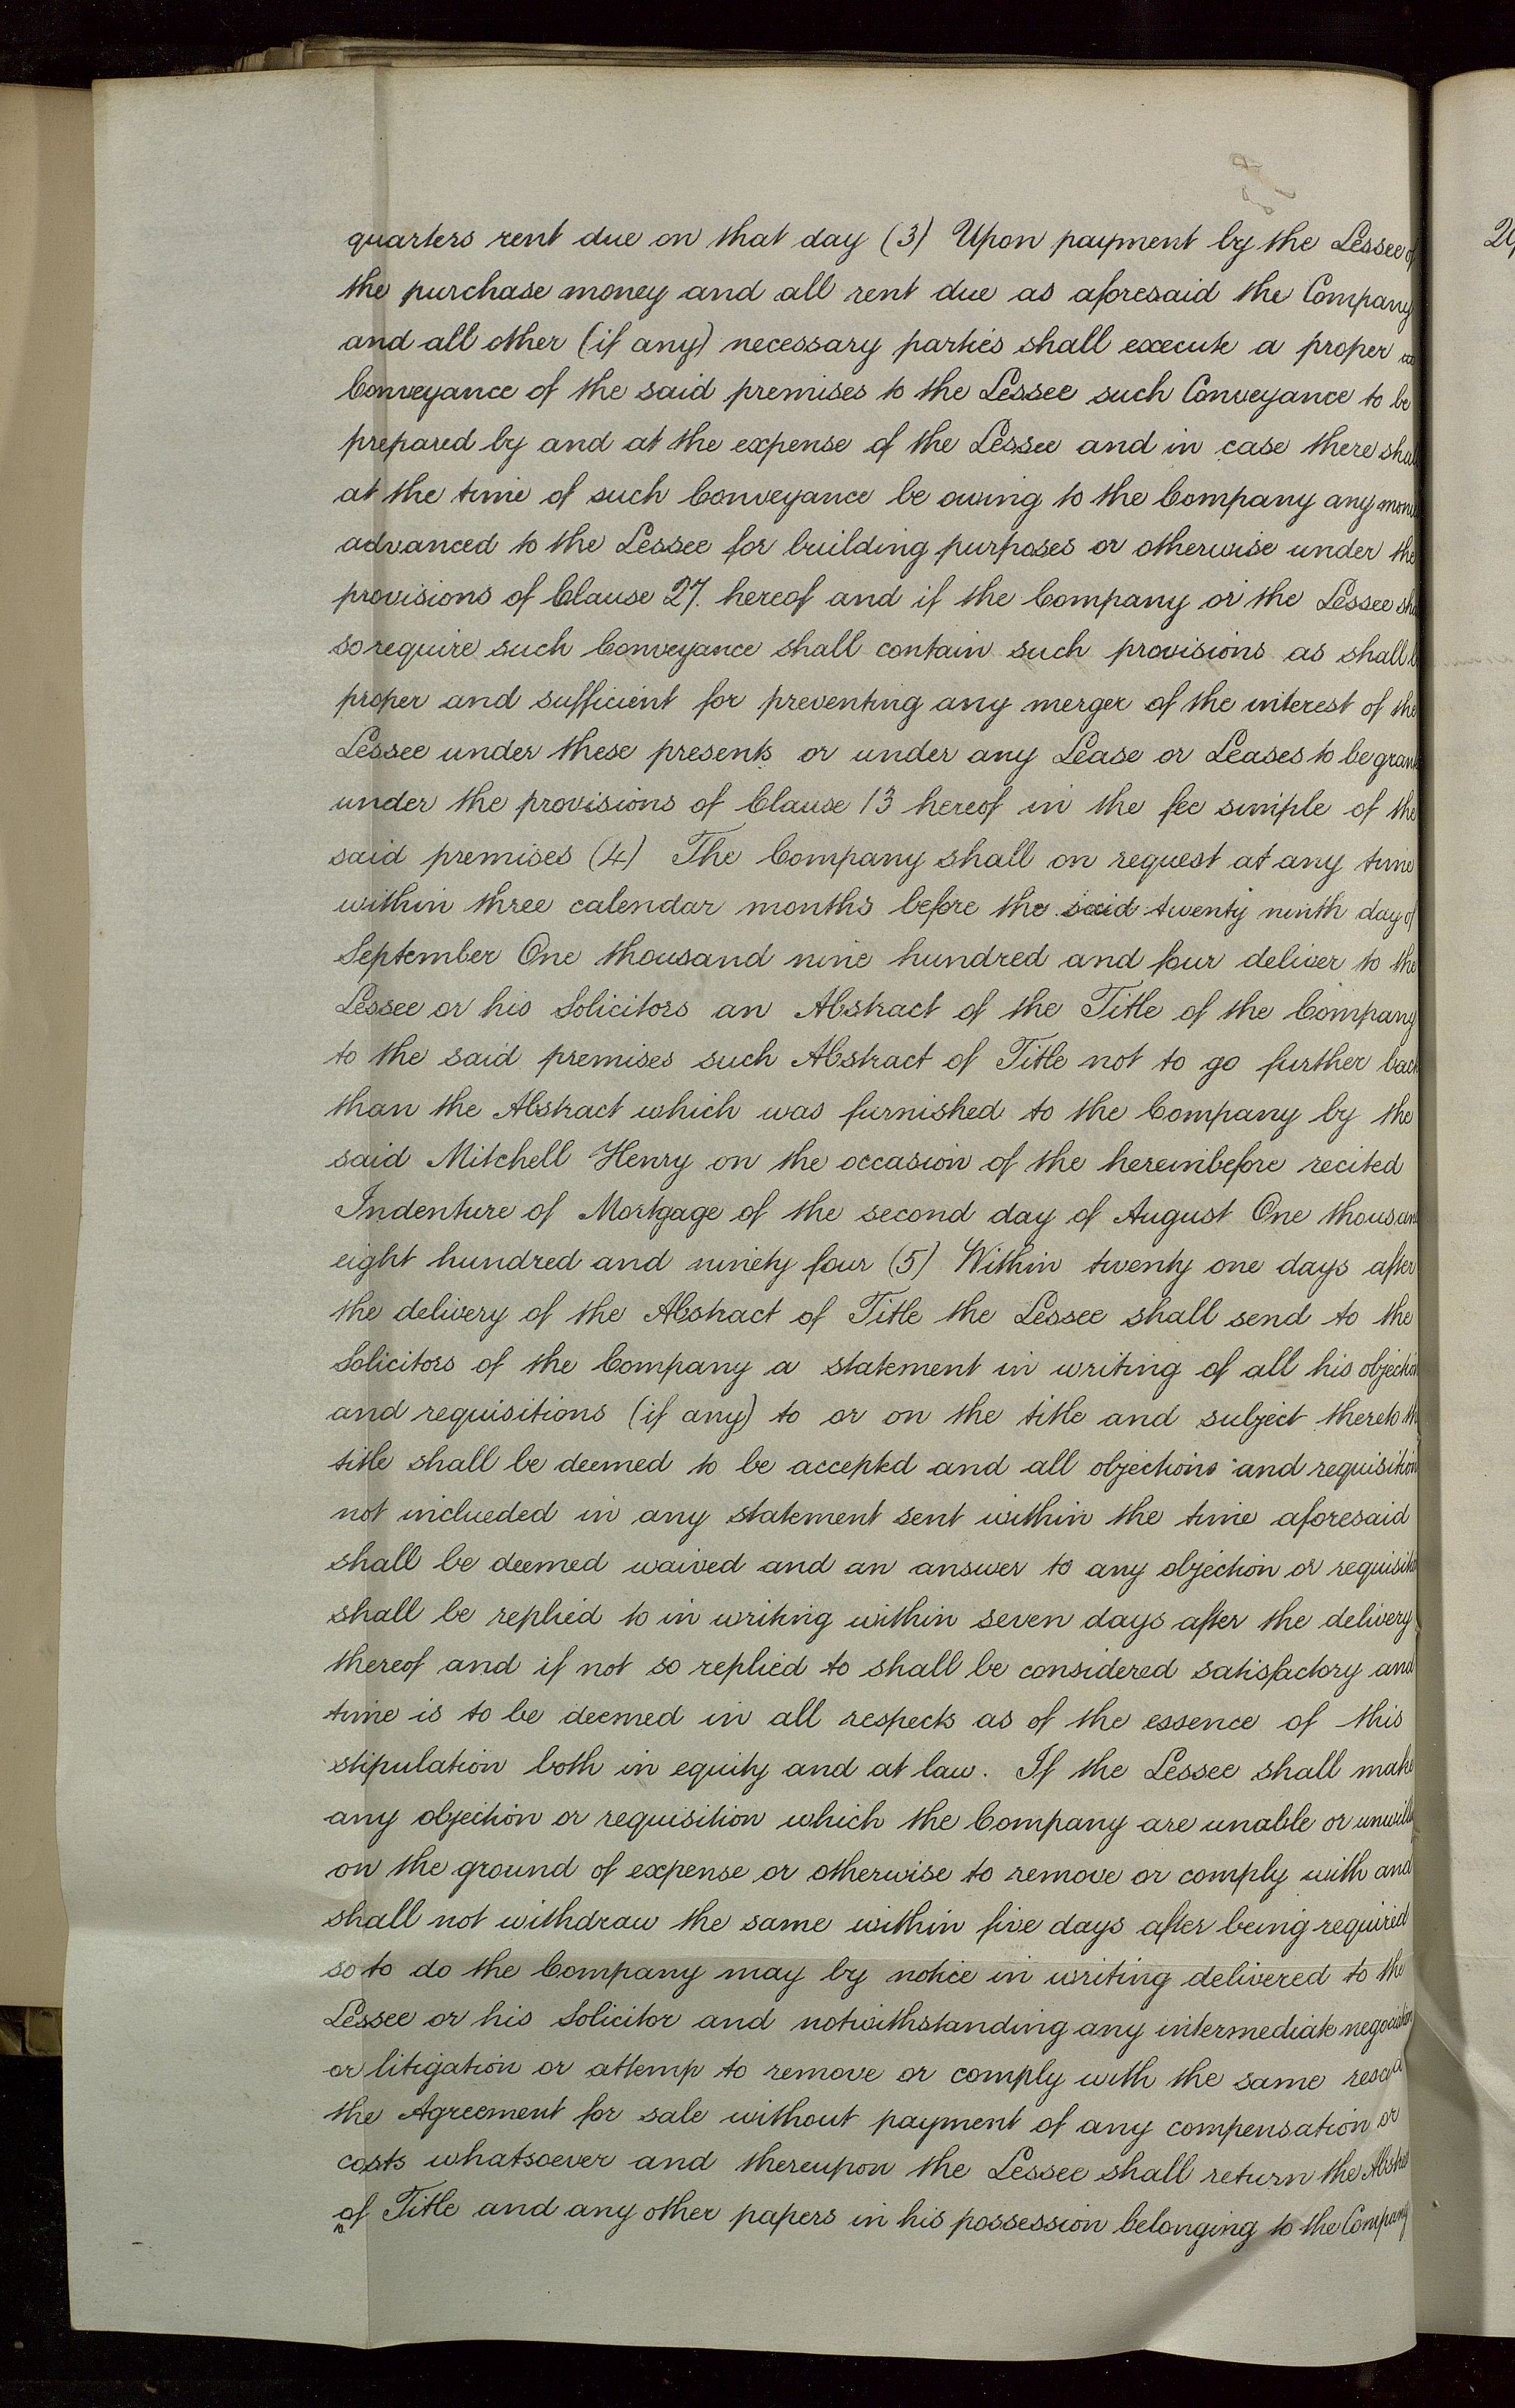 quarters rent due on that day (3) Upon payment by the Lessee of
the purchase money and all rent due as aforesaid the Company
and all other (if any) necessary parties shall execute a proper
Conveyance of the said premises to the Lessee such Conveyance to be
prepared by and at the expense of the Lessee and in case there shall
at the time of such Conveyance be owing to the Company any
advanced to the Lessee for building purposes or otherwise under the
provisions of Clause 27. hereof and if the Company or the Lessee sha
so require such Conveyance shall contain such provisions as shall b
proper and sufficient for preventing any merger of the interest of the
Lessee under these presents or under any Lease or Leases to be grant
under the provisions of Clause 13 hereof in the fee simple of the
said premises (4) The Company shall on request at any time
within three calendar months before the said twenty ninth day of
September One thousand nine hundred and four deliver to the
Lessee or his Solicitors an Abstract of the Title of the Company
to the said premises such Abstract of Title not to go further back
than the Abstract which was furnished to the Company by the
said Mitchell Henry on the occasion of the hereinbefore recited
Indenture of Mortgage of the second day of August One thousan
eight hundred and ninety four (5) Within twenty one days after
the delivery of the Abstract of Title the Lessee shall send to the
Solicitors of the Company a statement in writing of all his objection
and requisitions (if any) to or on the title and subject thereto th
title shall be deemed to be accepted and all objections and requisition
not inclueded in any statement sent within the time aforesaid
shall be deemed waived and an answer to any objection or requisitio
shall be replied to in writing within seven days after the delivery
thereof and if not so replied to shall be considered satisfactory and
time is to be deemed in all respects as of the essence of this
stipulation both in equity and at law. If the Lessee shall make
any objection or requisition which the Company are unable or unwill
on the ground of expense or otherwise to remove or comply with and
shall not withdraw the same within five days after being required
so to do the Company may by notice in writing delivered to the
Lessee or his Solicitor and notwithstanding any intermediate negociation
or litigation or attemp to remove or comply with the same
the Agreement for sale without payment of any compensation or
costs whatsoever and thereupon the Lessee shall return the Abstra
of Title and any other papers in his possession belonging to the Company